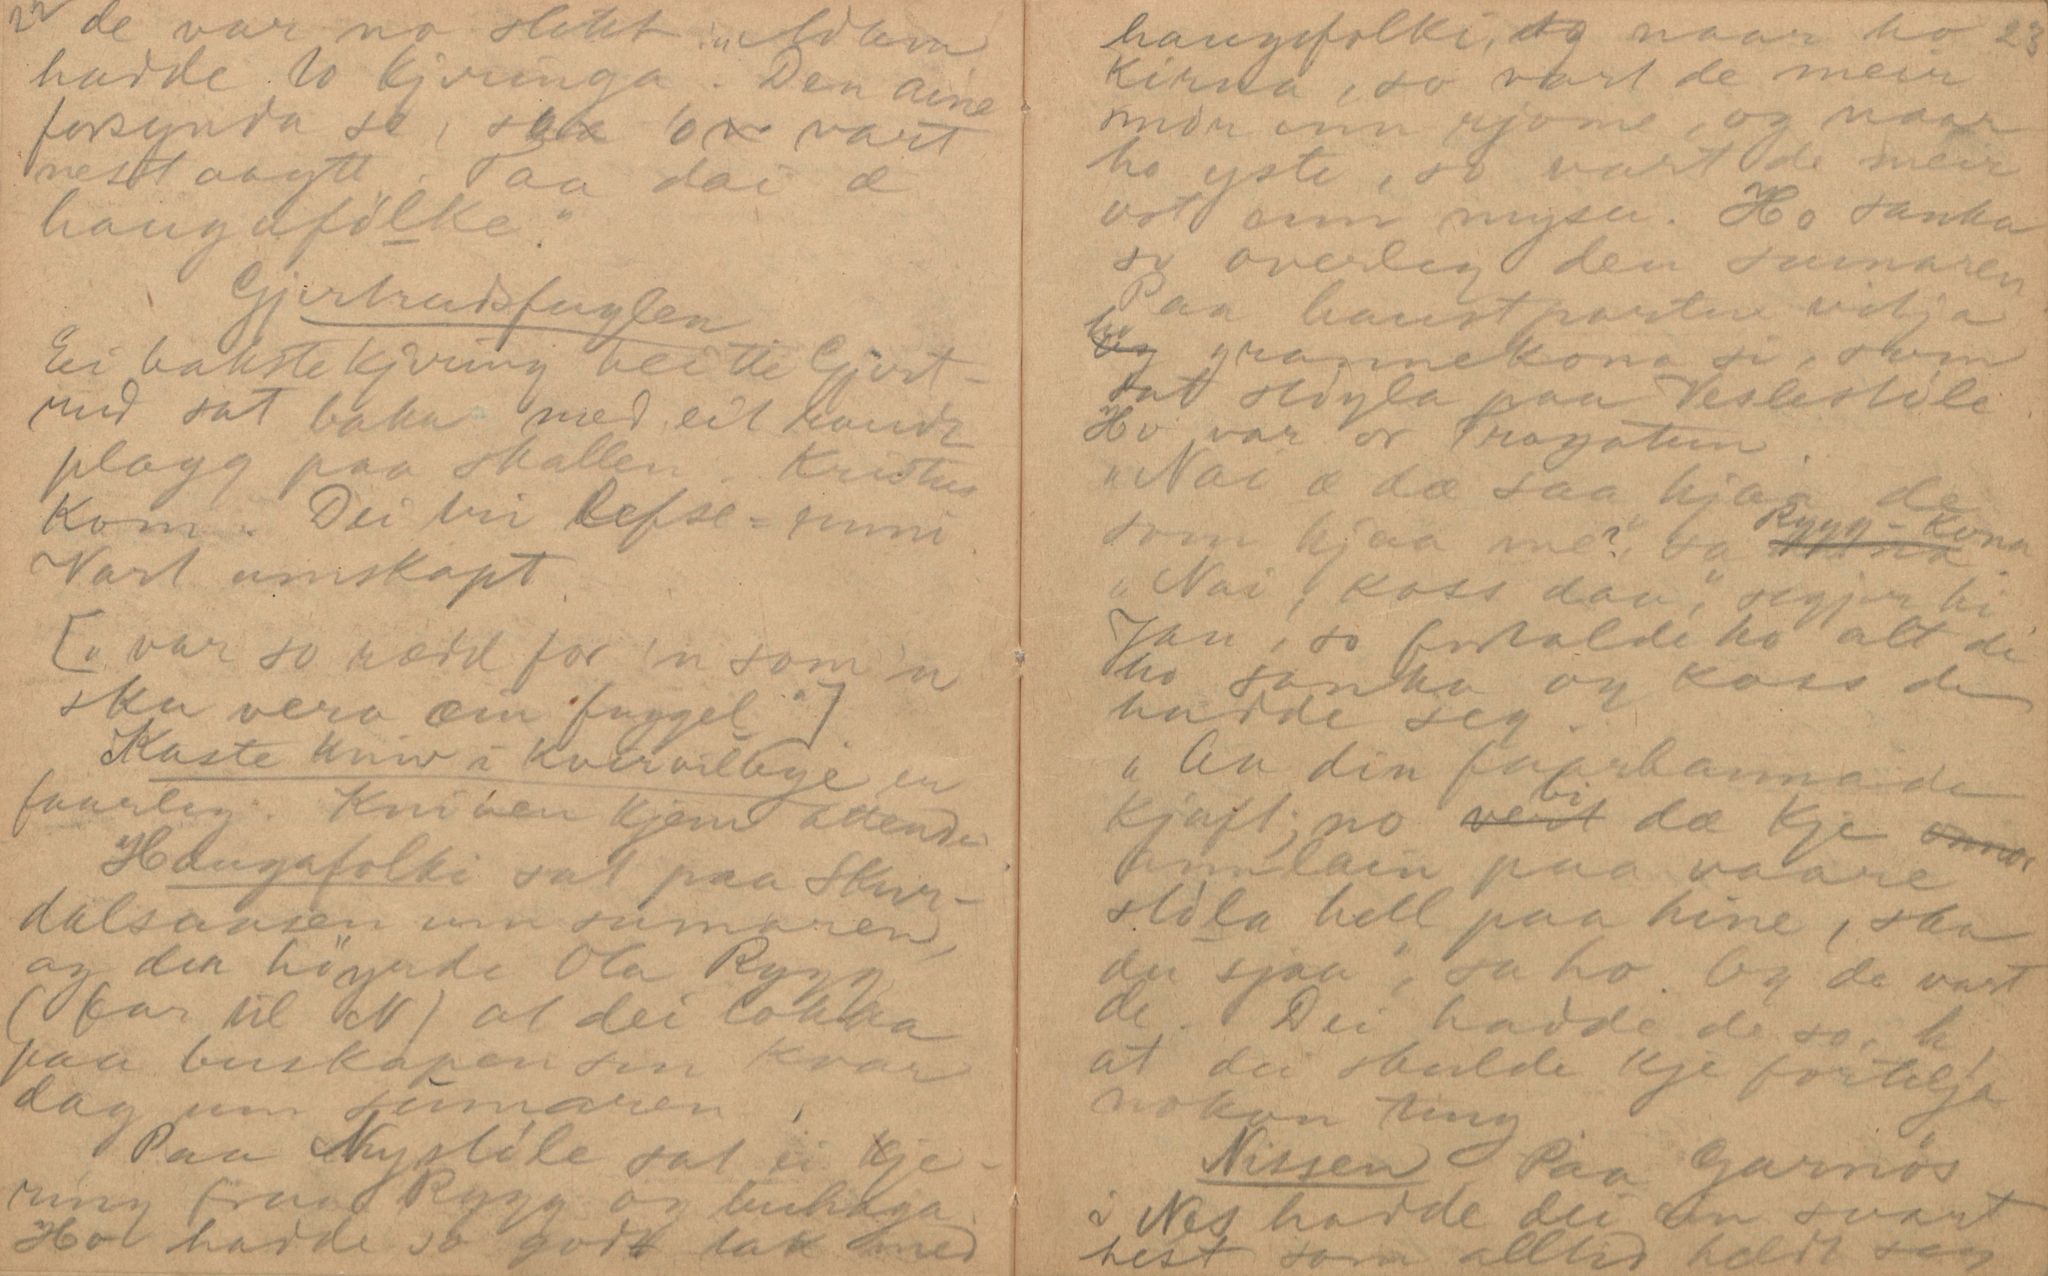 22
de var no slikt. "Adam
hadde to kjeringa. Den aine
forsynda se, saa vart
nest aagytt. Taa dai æ
haugafölke."
Gjertrudsfuglen
Ei bakstekjering heitte Gjert-
rud sat baka med eit raudt
plagg paa skallen. Kristus
kom. Dei bin Lefse-emni
Vart umskapt.
[" var so rædd for 'n som 'n
ska vera ein fuggel"]
Kaste kniv i kvervilbyje er
faarleg. Kniven kjem attende
Haugafolki sat paa Skur-
dalsaasen um sumaren,
og den höyrde Ola Rygg
(far til N) at dei lokka
paa buskapen sin kvar
dag um sumaren.
Paa Nystöle sat ei kje-
ring fraa Rygg og buhaga.
Ho hadde so godt tak med
23
haugafolki, og naar ho
kirna, so vart de meir
smör enn rjome, og naar
ho yste, so vart de meir
ost enn myse. Ho sanka
so overleg den sumaren
Paa haustparten vitja
ho grannekona si, som
sat stöyla paa Veslestöle
Ho var or Tragatun.
"Nai æ dæ saa hjaa de
som hjaa me?", sa Rygg-kona
"Nai, koss daa," segjer hi
Jau, so fortalde ho alt de
ho sanka og koss de
hadde seg.
"Aa din faarbanna de
kjaft; no bi dæ kje
annlain paa vaare
stöla hell paa hine, ska
du sjaa", sa ho. Og de vart
de. Dei hadde de so,
at dei skulde kje fortelja
nokon ting
Nissen Paa Garnös
i Nes hadde dei ein svart
hest som alltid heldt seg